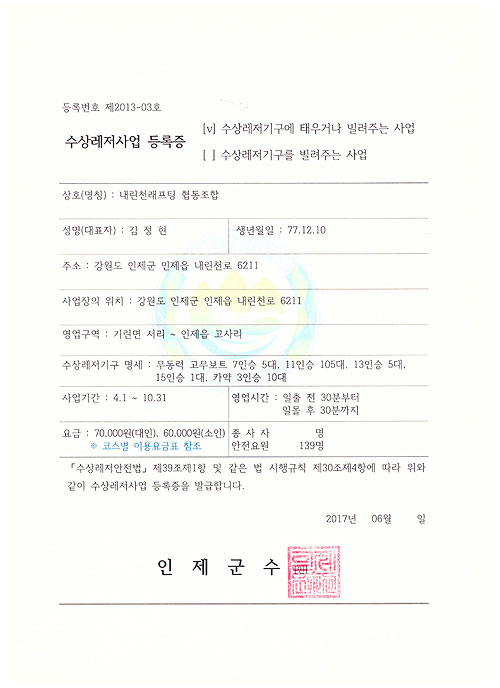 등록번호 제2013-03호
수상레저사업 등록증
[v] 수상레저기구에 태우거나 빌려주는 사업
[ ] 수상레저기구를 빌려주는 사업
상호(명칭) : 내린천래프팅 협동조합
성명(대표자) : 김 정 현
생년월일 : 77.12.10
주소 : 강원도 인제군 인제읍 내린천로 6211
사업장의 위치 : 강원도 인제군 인제읍 내린천로 6211
영업구역 : 기린면 서리 ~ 인제읍 고사리
수상레저기구 명세 : 무동력 고무보트 7인승 5대, 11인승 105대, 13인승 5대,
15인승 1대, 카약 3인승 10대
사업기간 : 4.1 ~ 10.31
영업시간 : 일출 전 30분부터
일몰 후 30분까지
요금 : 70,000원(대인), 60,000원(소인)
※ 코스별 이용요금표 참조
종 사 자 명
안전요원 139명
「수상레저안전법」 제39조제1항 및 같은 법 시행규칙 제30조제4항에 따라 위와
같이 수상레저사업 등록증을 발급합니다.
2017년 06월 일
인 제 군 수